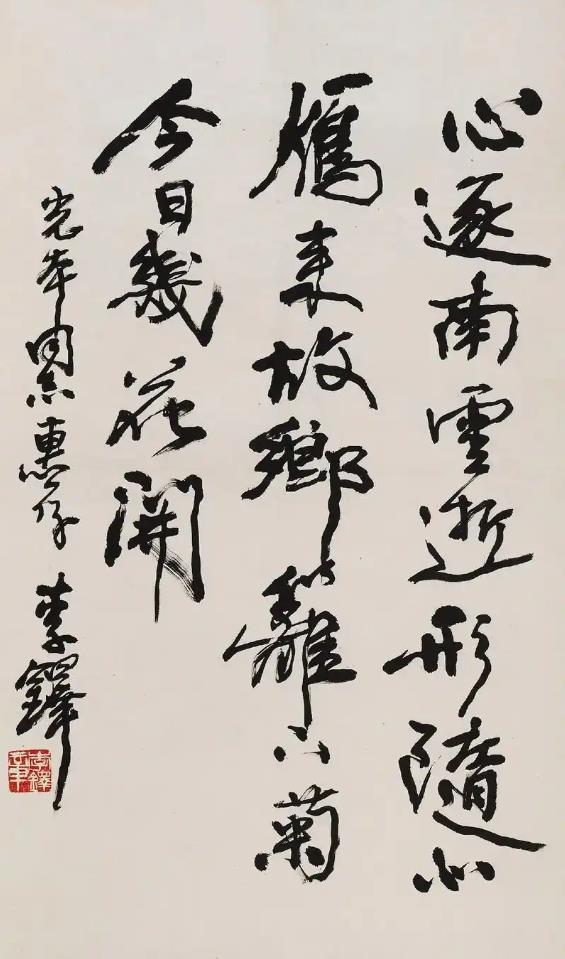 心逐南雲逝形隨北
鴈来故鄉籬下菊
今日幾花開
光同志惠存 李鐸
李鐸